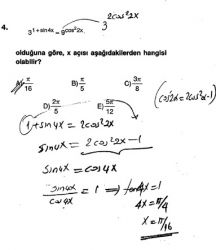 3^{2cos²2x}
4. 3^{1+sin4x} = 9^{cos²2x}
olduğuna göre, x açısı aşağıdakilerden hangisi
olabilir?
A) π/16 B) π/5 C) 3π/8
D) 2π/5 E) 5π/12
(cos2x = 2cos²x-1)
1+sin4x = 2cos²2x
sin4x = 2cos²2x-1
sin4x = cos4x
sin4x/cos4x = 1 ⇒ tan4x=1
4x = π/4
x = π/16